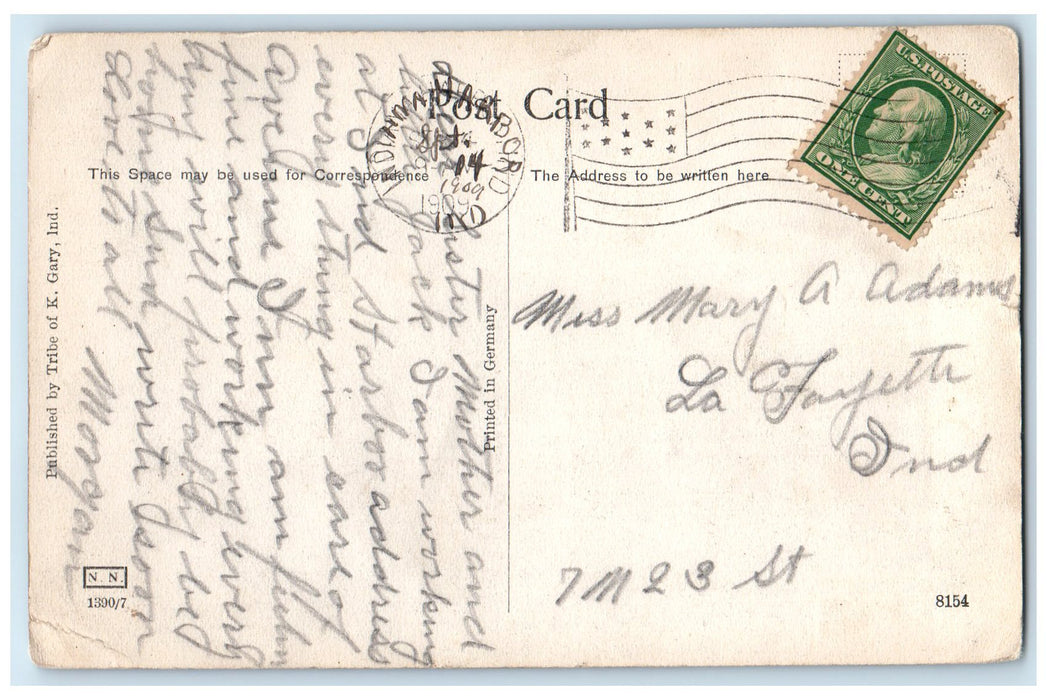 Post Card
This Space may be used for Correspondence
The Address to be written here
U.S. POSTAGE
ONE CENT
INDIANA HARBOR
IND
Sept.
14
1909
1909
Sister Mother and
Jack I am working
at Ind Harbor address
every thing in care of
Arvelme I am am feelin
fine and working every
day will probably be
home Sund write soon
Love to all
Morgan
Miss Mary A Adams
La Fayette
Ind
7 M 23 St
Published by Tribe of K. Gary, Ind.
Printed in Germany
N. N.
1390/7
8154